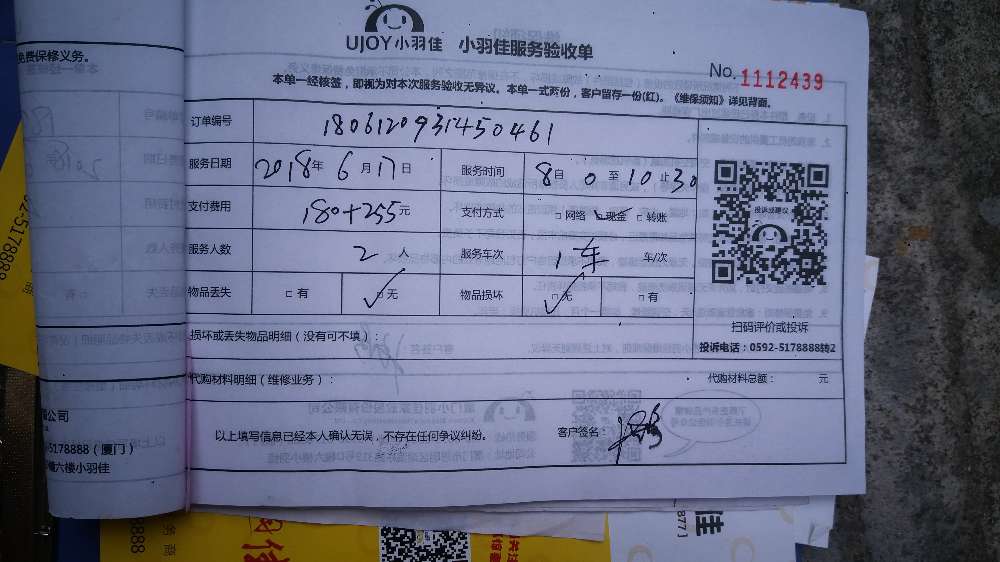 免费保修义务。
UJOY小羽佳 小羽佳服务验收单
No. 1112439
本单一经核签，即视为对本次服务验收无异议。本单一式两份，客户留存一份(红)。《维保须知》详见背面。
订单编号 1806120931450461
服务日期 2018年 6月 17日 服务时间 8自 0至 10止 30
支付费用 180+255元 支付方式 □网络 □现金 □转账
投诉或建议
服务人数 2人 服务车次 1车 车/次
物品丢失 □有 □无 物品损坏 □无 □有
扫码评价或投诉
损坏或丢失物品明细（没有可不填）：
投诉电话：0592-5178888转2
代购材料明细（维修业务）： 代购材料总额： 元
以上填写信息已经本人确认无误，不存在任何争议纠纷。 客户签名：
公司
-5178888（厦门）
六楼小羽佳
02-5178888
8888
佳